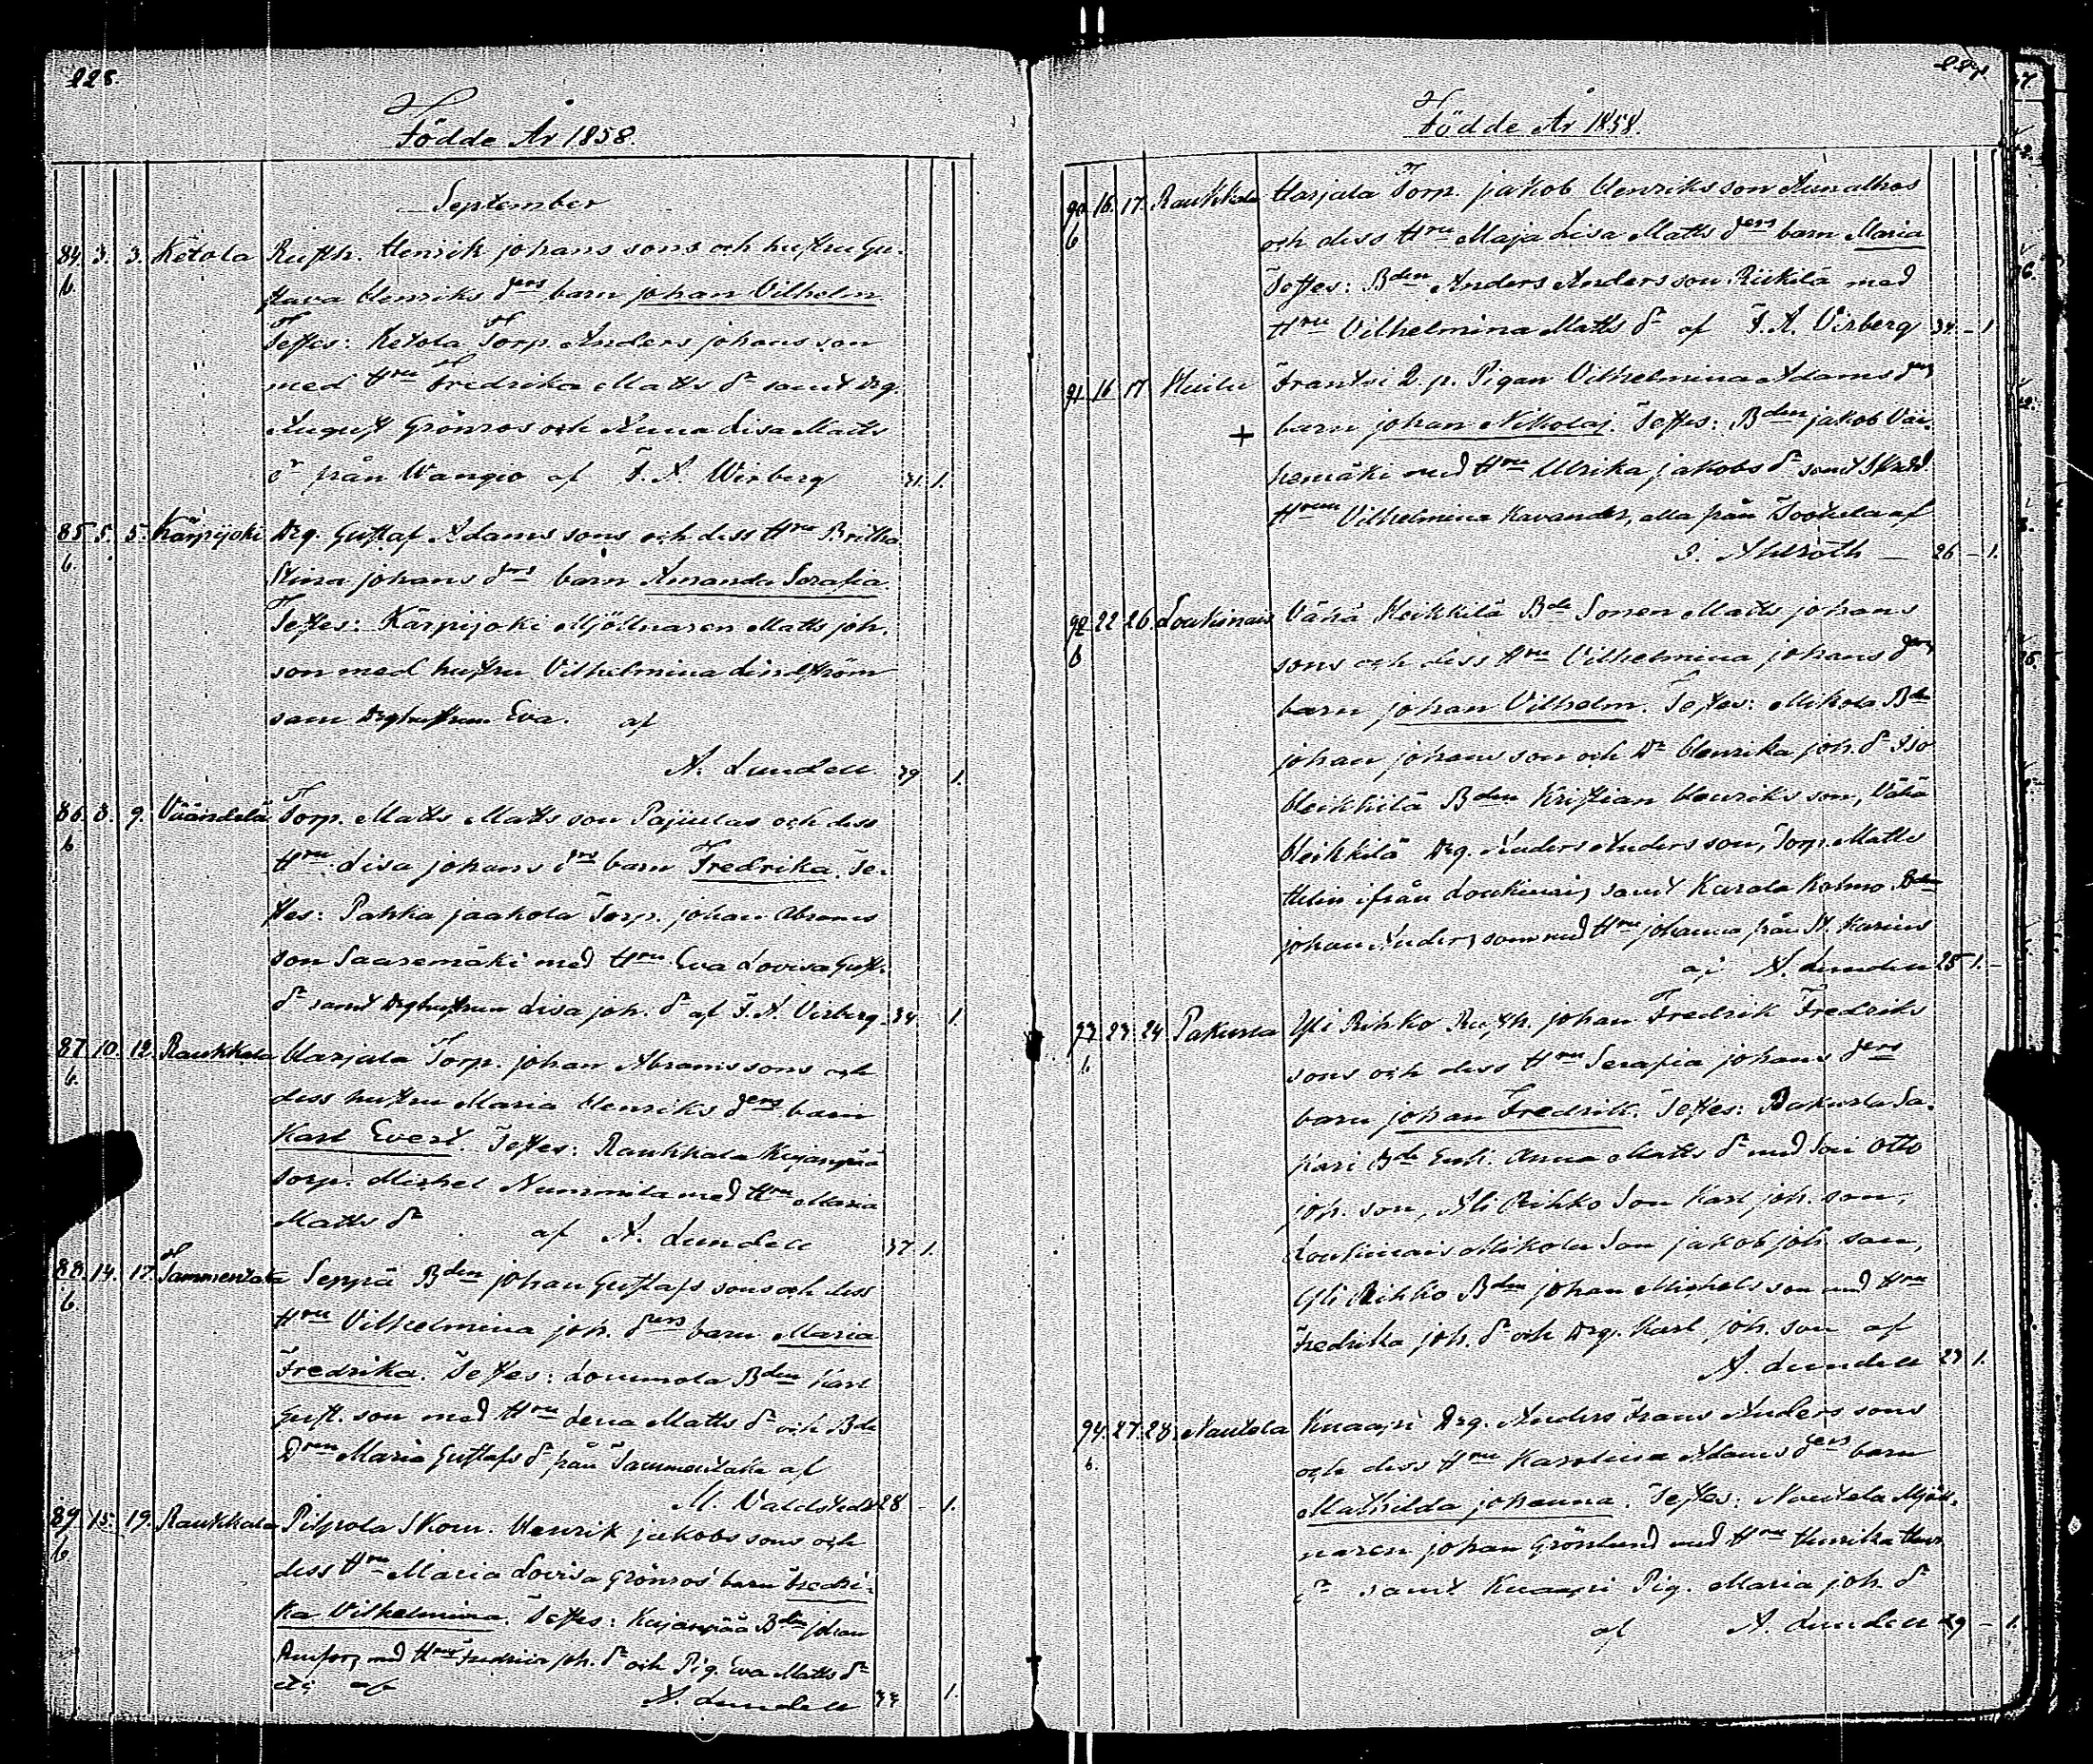 228.
Födde År 1858.
September
84. 3. 3. Ketola Rusth. Henrik Johans sons och hustru Gu-
6. stava Henriks ders barn Johan Vilhelm
Testes: Ketola Torp. Anders Johans son
med Hru Fredrika Matts dr samt drg.
August Grönros och Anna Lisa Matts
dr från Wangio af F. A. Wirberg 31. 1.
85. 5. 5. Kärpijoki Drg. Gustaf Adams sons och dess Hru Britha
6. Stina Johans drs barn Amanda Serafia.
Testes: Kärpijoki Mjöllnaren Matts Joh.
son med hustru Vilhelmina Lindström
sam Drghustrun Eva. af
A. Lundell 39 1.
86. 8. 9. Väändelä Torp. Matts Matts son Pajulas och dess
6 Hru Lisa Johans drs barn Fredrika. Te-
stes: Pahka jaakola Torp. Johan Abrams
son Saaremäki med Hru Eva Lovisa Gust.
dr samt Drghustrun Lisa Joh. dr af F. A. Virberg. 34 1.
87. 10. 12. Raukkala Harjala Torp. Johan Abrams sons och
6. dess hustru Maria Henriks ders barn
Karl Evert. Testes: Raukkala Kujanpää
Torp. Michel Nummila med Hru Maria
Matts dr af A. Lundell 37 1.
88. 14. 17. Tammentaka Seppä Bden Johan Gustafs sons och dess
6 Hru Vilhelmina Joh. ders barn Maria
Fredrika. Testes: Lommola Bden Karl
Gust. son med Hru Lena Matts dr och Bde
Dren Maria Gustafs dr från Tammentaka af
M. Valdstedt 28 - 1.
89. 15. 19. Raukkala Pilpola Skom. Henrik Jakobs sons och
6 dess Hru Maria Lovisa Grönros barn Fredri-
ka Vilhelmina. Testes: Kujanpää Bden Johan
med Hru Joh. dr och Pig. Eva Matts dr
af A. Lundell 33 1.
Födde År 1858.
90. 16. 17. Raukkala Harjala Torp. Jakob Henriks son
6 och dess Hru Maja Lisa Matts ders barn Maria
Testes: Bden Anders Anders son Riikilä med
Hru Vilhelmina Matts dr af F. A. Virberg 34 - 1.
91. 16 17 Huilu Frantsi Q. p. Pigan Vilhelmina Adams ders
+ barn Johan Nikolaj. Testes: Bden Jakob Vai-
hemäki med Hru Ulrika Jakobs dr samt Skrädd.
Hrun Vilhelmina Kavander, alla från af
J. Ahlroth - 26 - 1.
92. 22 26. Loukinais Vähä Heikkilä Bde Sonen Matts Johans
6 sons och dess Hru Vilhelmina Johans ders
barn Johan Vilhelm. Testes: Mikola Bde
Johan Johans son och Dr Henrika Joh. dr Iso
Heikkilä Bden Kristian Henriks son, Vähä
Heikkilä Drg. Anders Anders son, Torp. Matts
ifrån Loukinais, samt Kurala Kolmo
Johan Anders son med Hru Johanna från St. Karins
af A. Lundell 25 1. -
93. 23. 24. Pakurla Yli Rihko Rusth. Johan Fredrik Fredriks
6 sons och dess Hru Serafia Johans ders
barn Johan Fredrik. Testes: Pakurla Sa-
kari Bde Enk. Anna Matts dr med Son Otto
Joh. son, Yli Rihko Son Karl Joh. son,
Loukinais Mikola Son Jakob Joh. son,
Yli Rihko Bden Johan Michels son med Hru
Fredrika Joh. dr och Drg. Karl Joh. son af
A. Lundell 23 1.
94. 27. 28. Nautela Knaapi Drg. Anders Frans Anders sons
6. och dess Hru Karolina Adams ders barn
Mathilda Johanna. Testes: Nautela Mjöll-
naren Johan Grönlund med Hru Henrika Henr.
dr samt Knaapi Pig. Maria Joh. dr
af A. Lundell 29 - 1.